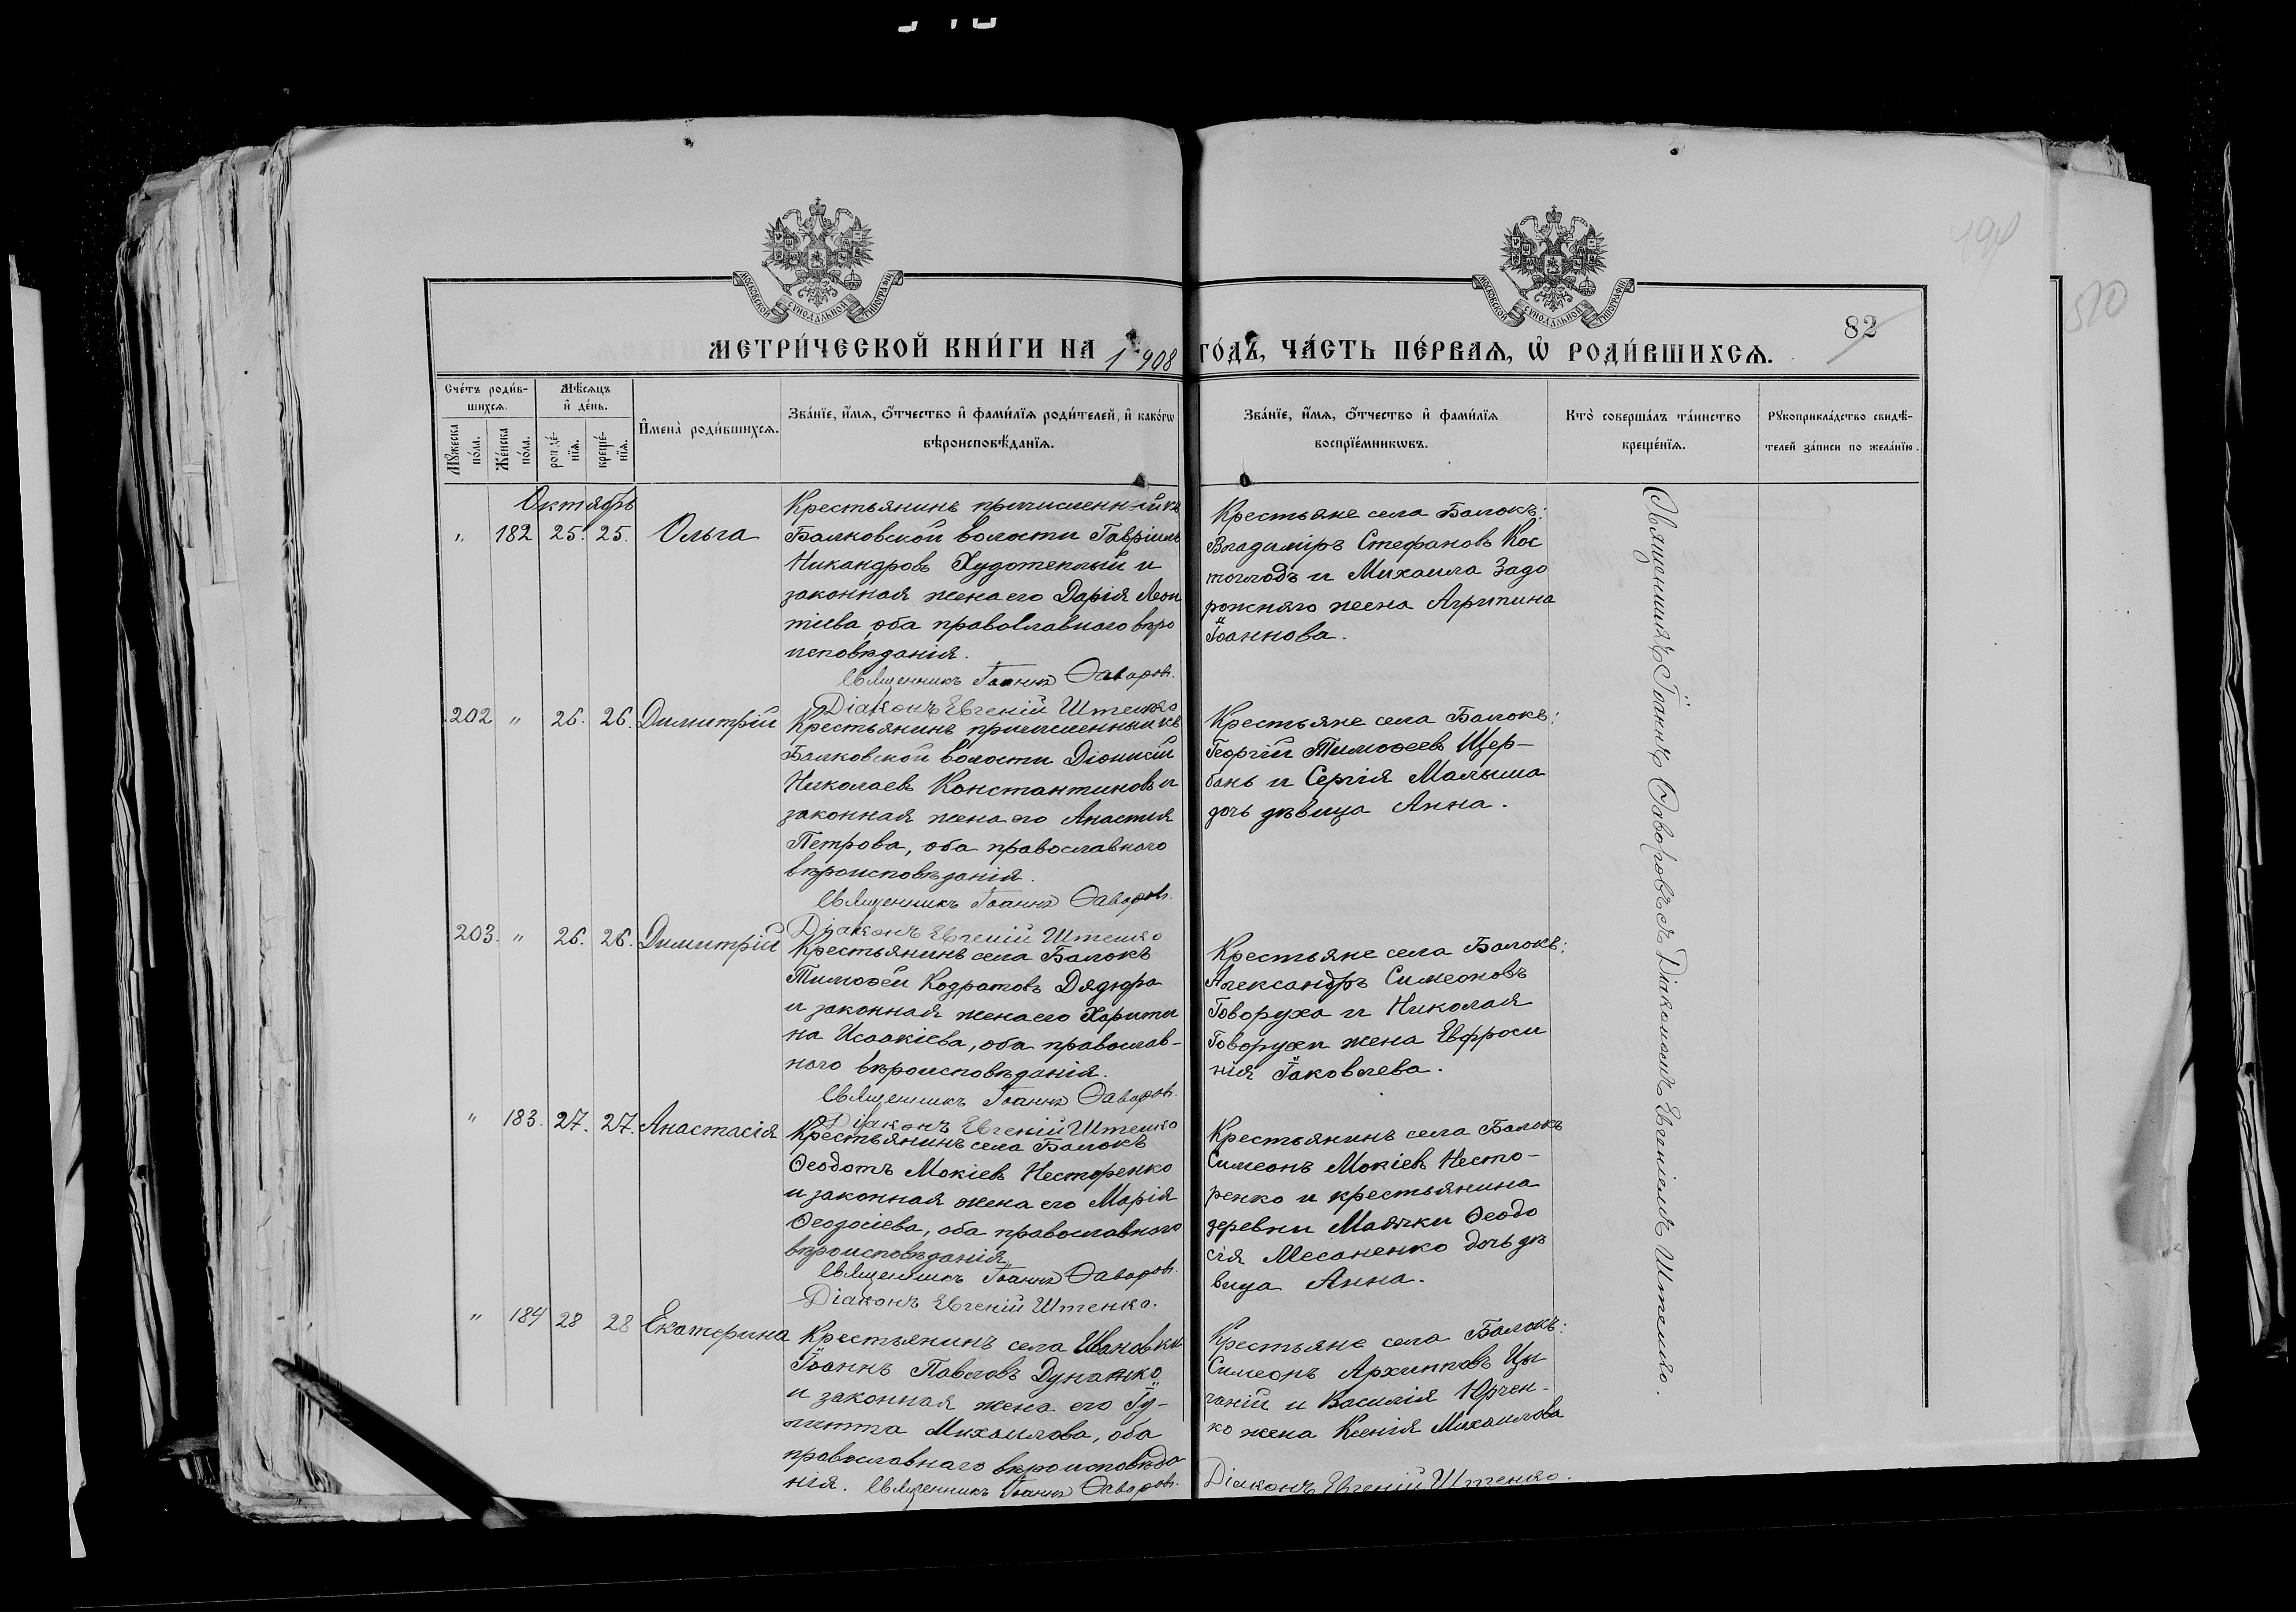 МОСКОВСКОЙ СУНОДАЛЬНОЙ ТИПОГРАФІИ
МОСКОВСКОЙ СУНОДАЛЬНОЙ ТИПОГРАФІИ
510
82
МЕТРИ́ЧЕСКОЙ КНИ́ГИ НА 1908 ГО́ДЪ, ЧА́СТЬ ПЕ́РВАѦ, Ѡ҆ РОДИ́ВШИХСѦ.
Сче́тъ роди́в-
шихсѧ.
Мꙋжеска по́ла.
Же́нска по́ла.
Мѣ́сѧцъ
и҆ де́нь.
рожде́-
нїѧ.
креще́-
нїѧ.
И҆мена̀ роди́вшихсѧ.
Зва́нїе, и҆́мѧ, ѻ҆́тчество и҆ фами́лїѧ роди́телей, и҆ како́гѡ
вѣроисповѣ́данїѧ.
Зва́нїе, и҆́мѧ, ѻ҆́тчество и҆ фами́лїѧ
воспрїе́мникѡвъ.
Кто̀ соверша́лъ та́инство
креще́нїѧ.
Рꙋкоприкла́дство свидѣ́-
телей за́писи по жела́нїю.
Октябрь
" 182 25. 25. Ольга
Крестьянинъ причисленный къ
Балковской волости Гавріилъ
Никандровъ Худотеплый и
законная жена его Дарія Леон
тіева, оба православнаго вѣро
исповѣданія.
Священникъ Іоаннъ Ѳаворовъ.
Діаконъ Евгеній Штенко
Крестьяне села Балокъ:
Владиміръ Стефановъ Кос
тоглодъ и Михаила Задо
рожняго жена Агрипина
Іоаннова.
Священникъ Іоаннъ Ѳаворовъ съ Діакономъ Евгеніемъ Штенко.
202 " 26. 26. Димитрій
Крестьянинъ причисленный къ
Балковской волости Діонисій
Николаевъ Константиновъ и
законная жена его Анастія
Петрова, оба православнаго
вѣроисповѣданія.
Священникъ Іоаннъ Ѳаворовъ.
Діаконъ Евгеній Штенко
Крестьяне села Балокъ:
Георгій Тимоѳеевъ Щер-
бань и Сергія Малыша
дочь дѣвица Анна.
203. " 26. 26. Димитрій
Крестьянинъ села Балокъ
Тимоѳей Кодратовъ Дядюра
и законная жена его Харити
на Исаакіева, оба православ-
наго вѣроисповѣданія.
Священникъ Іоаннъ Ѳаворовъ.
Діаконъ Евгеній Штенко
Крестьяне села Балокъ:
Александръ Симеоновъ
Говоруха и Николая
Говорухи жена Евфроси
нія Іаковлева.
" 183. 27. 27. Анастасія
Крестьянинъ села Балокъ
Ѳеодотъ Мокіевъ Нестеренко
и законная жена его Марія
Ѳеодосіева, оба православнаго
вѣроисповѣданія.
Священникъ Іоаннъ Ѳаворовъ.
Діаконъ Евгеній Штенко.
Крестьянинъ села Балокъ
Симеонъ Мокіевъ Несте-
ренко и крестьянина
деревни Маячки Ѳеодо
сія Месаненко дочь дѣ
вица Анна.
" 184 28 28 Екатерина
Крестьянинъ села Ивановки
Іоаннъ Павловъ
и законная жена его Іу-
литта Михаилова, оба
православнаго вѣроисповѣда
нія. Священникъ Іоаннъ Ѳаворовъ.
Крестьяне села Балокъ:
Симеонъ Архиповъ Цы
ганій и Василія Юрчен-
ко жена Ксенія Михаилова
Діаконъ Евгеній Штенко.